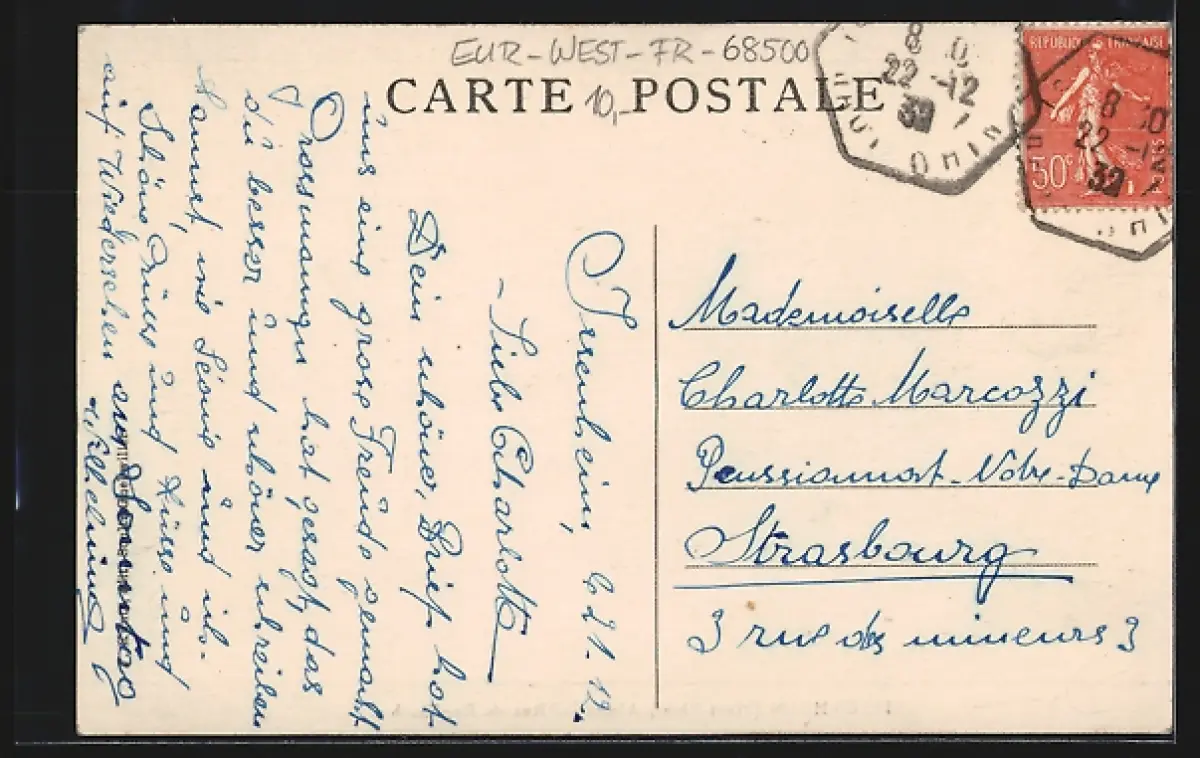 EUR-WEST-FR-68500
CARTE POSTALE
10,-
8 0
22 -12
32
HAUT RHIN
REPUBLIQUE FRANÇAISE
50c
POSTES
8 10
22 -12
32
Isenheim, 21. 12.
- Liebe Charlotte
Dein schöner Brief hat
uns eine grose Freude gemacht
Grossmama hat gesagt, das
du besser und schöner schreiben
kannst, wie Léonie und ich.
Schöne Grüsse und Küsse und
auf Wiedersehen am Donnerstag
Mademoiselle
Charlotte Marcozzi
Penssionnat-Notre-Dame
Strasbourg
3 rue des mineurs 3